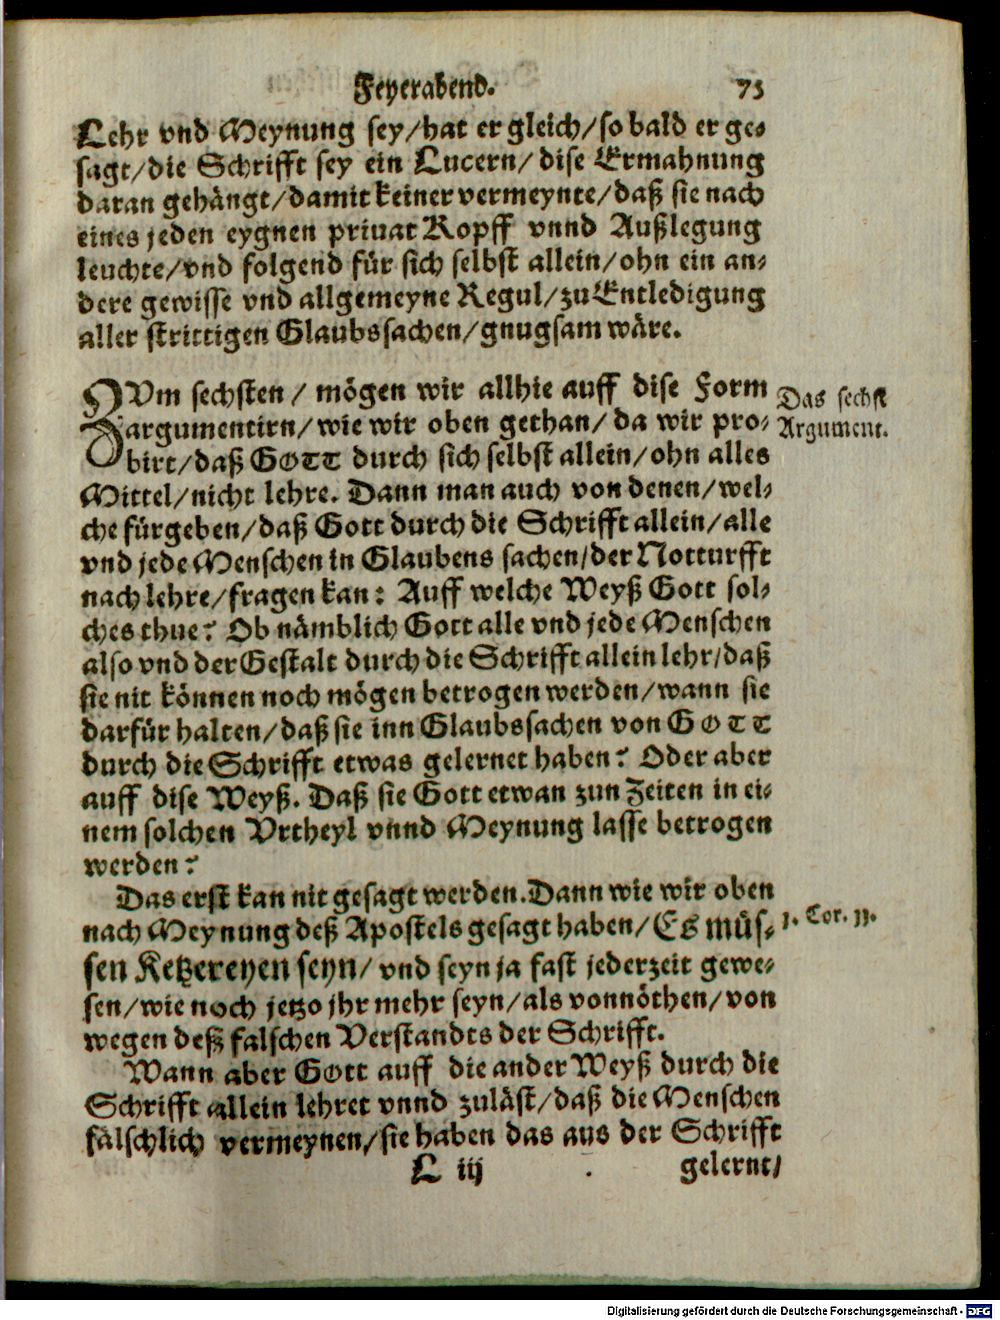 Feyerabend. 75
Lehr vnd Meynung sey/hat er gleich/so bald er ge-
sagt/die Schrifft sey ein Lucern/dise Ermahnung
daran gehängt/damit keiner vermeynte/daß sie nach
eines jeden eygnen priuat Kopff vnnd Außlegung
leuchte/vnd folgend für sich selbst allein/ohn ein an-
dere gewisse vnd allgemeyne Regul/zu Entledigung
aller strittigen Glaubssachen/gnugsam wäre.
ZVm sechsten/ mögen wir allhie auff dise Form
argumentirn/wie wir oben gethan/da wir pro-
birt/daß GOTT durch sich selbst allein/ohn alles
Mittel/nicht lehre. Dann man auch von denen/wel-
che fürgeben/daß Gott durch die Schrifft allein/alle
vnd jede Menschen in Glaubens sachen/der Notturfft
nach lehre/fragen kan: Auff welche Weyß Gott sol-
ches thue? Ob nämblich Gott alle vnd jede Menschen
also vnd der Gestalt durch die Schrifft allein lehr/daß
sie nit können noch mögen betrogen werden/wann sie
darfür halten/daß sie inn Glaubssachen von GOTT
durch die Schrifft etwas gelernet haben? Oder aber
auff dise Weyß. Daß sie Gott etwan zun Zeiten in ei-
nem solchen Vrtheyl vnnd Meynung lasse betrogen
werden?
Das sechst
Argument.
Das erst kan nit gesagt werden. Dann wie wir oben
nach Meynung deß Apostels gesagt haben/Es müs-
sen Ketzereyen seyn/ vnd seyn ja fast jederzeit gewe-
sen/wie noch jetzo jhr mehr seyn/als vonnöthen/von
wegen deß falschen Verstandts der Schrifft.
1. Cor. 11.
Wann aber Gott auff die ander Weyß durch die
Schrifft allein lehret vnnd zuläst/daß die Menschen
fälschlich vermeynen/sie haben das aus der Schrifft
L iij gelernt/
Digitalisierung gefördert durch die Deutsche Forschungsgemeinschaft - DFG